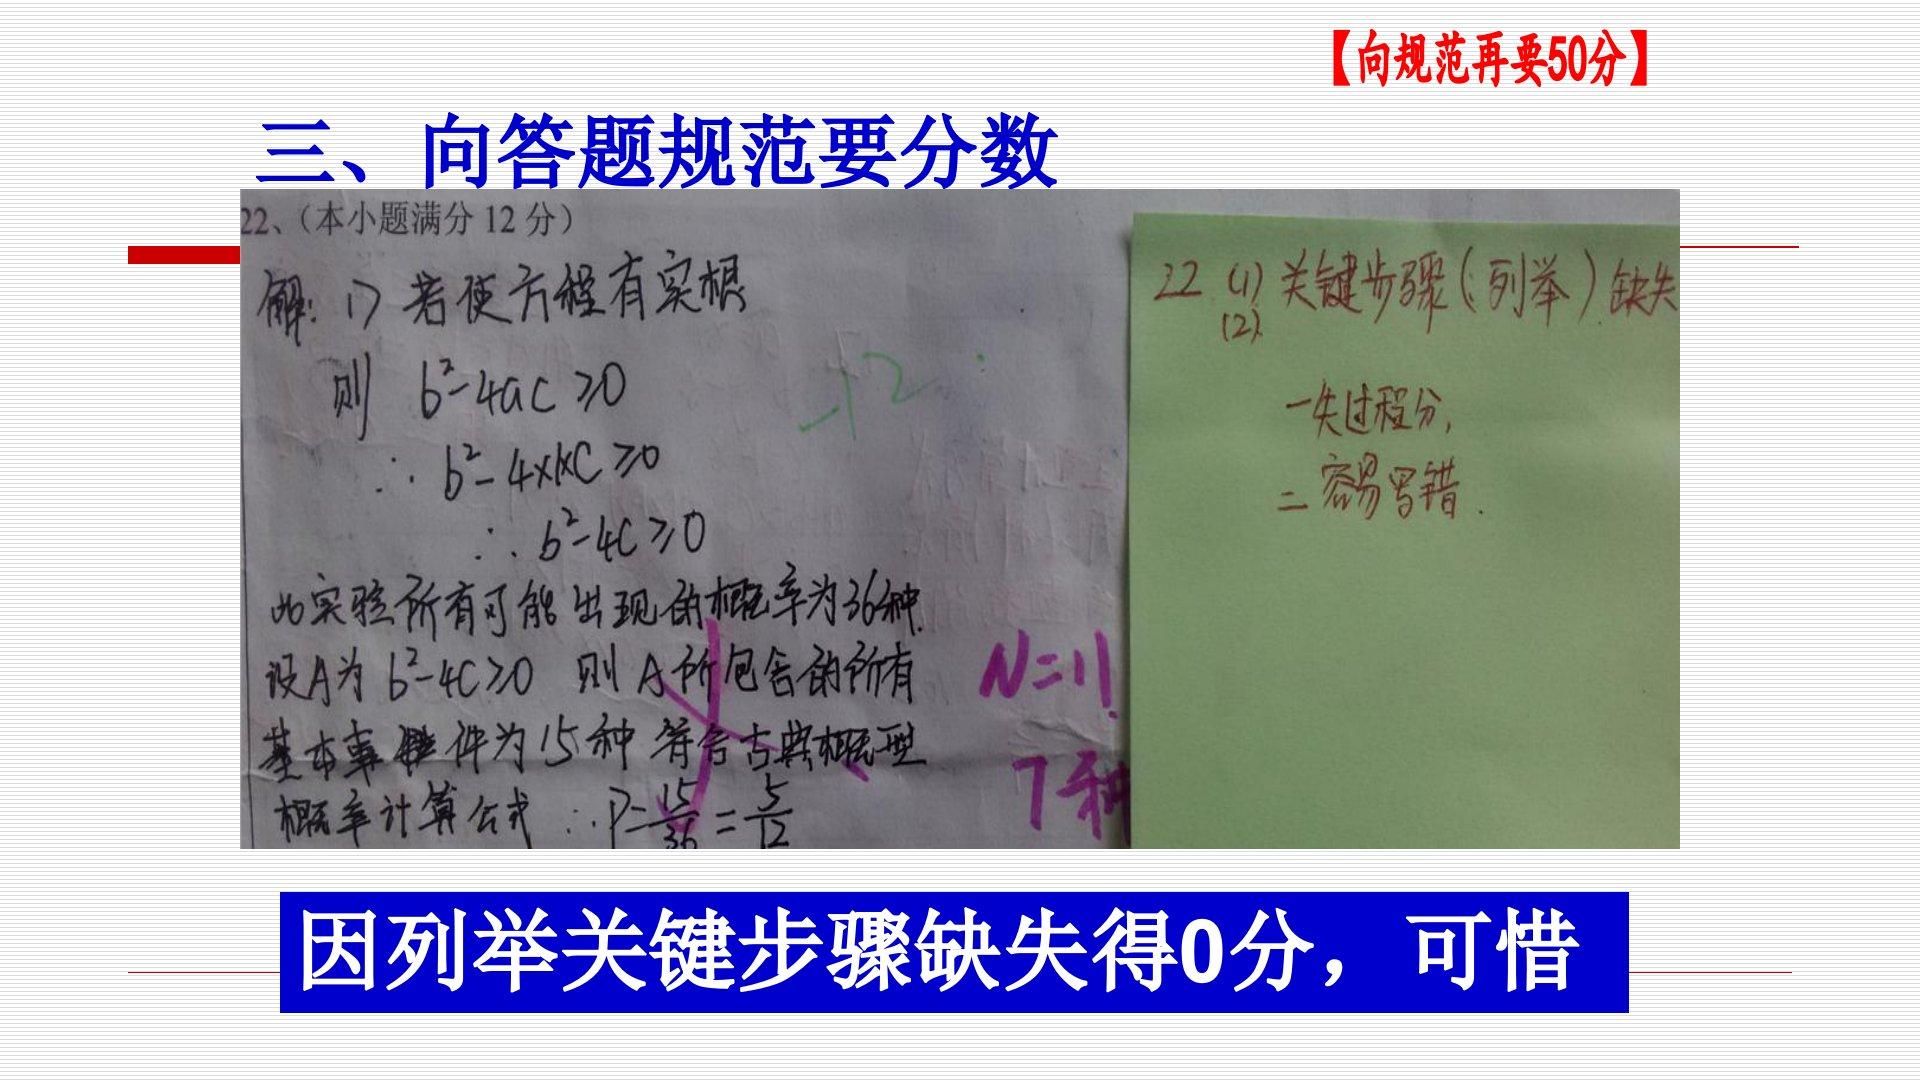 【向规范再要50分】
三、向答题规范要分数
22、（本小题满分 12 分）
解: 1) 若使方程有实根
则 b²-4ac≥0
∴ b²-4×1×C≥0
∴ b²-4C≥0
此实验所有可能出现的概率为36种.
设A为 b²-4C≥0 则 A所包含的所有
基本事件为15种 符合古典概型
概率计算公式 ∴P=15/36=5/12
-12
N=11
7种
22 (1) 关键步骤(列举)缺失
(2).
一失过程分,
二 容易写错.
因列举关键步骤缺失得0分，可惜